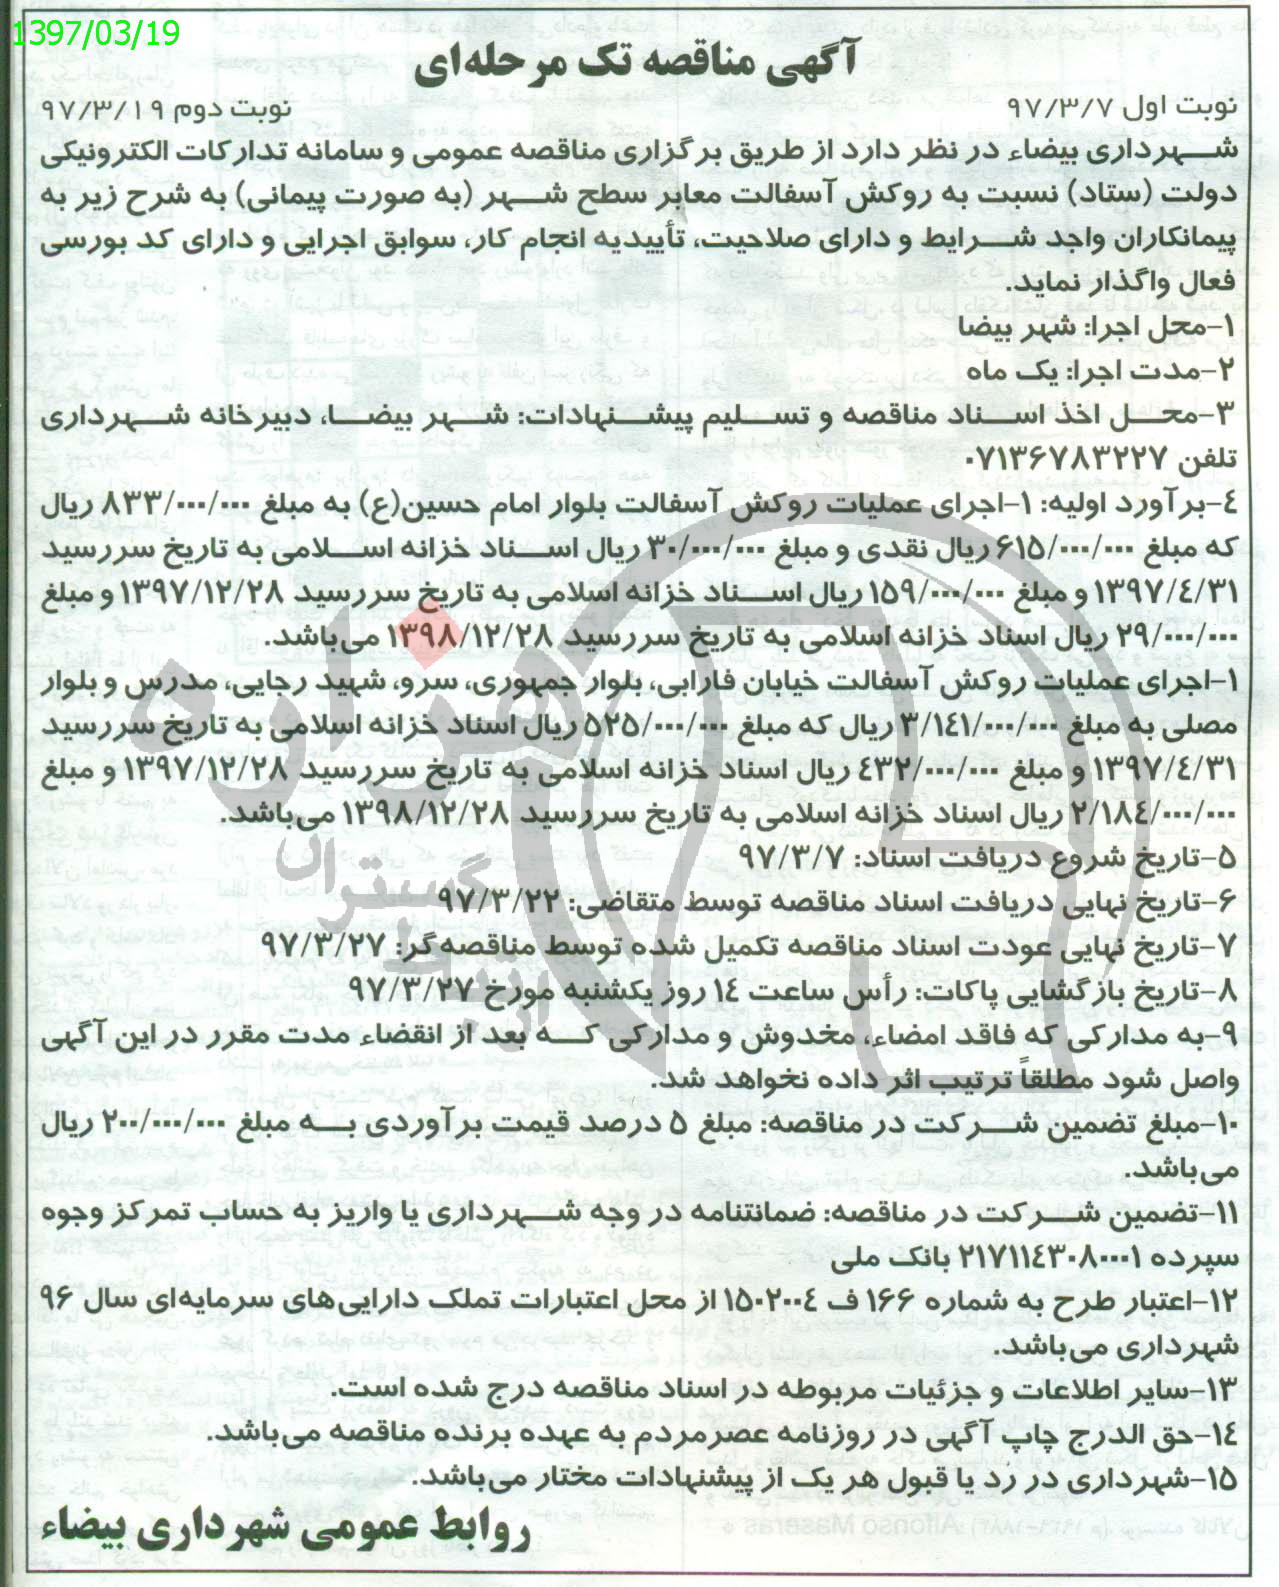 1397/03/19
آگهی مناقصه تک مرحله‌ای
نوبت اول ۹۷/۳/۷ نوبت دوم ۹۷/۳/۱۹
شهرداری بیضاء در نظر دارد از طریق برگزاری مناقصه عمومی و سامانه تدارکات الکترونیکی
دولت (ستاد) نسبت به روکش آسفالت معابر سطح شهر (به صورت پیمانی) به شرح زیر به
پیمانکاران واجد شرایط و دارای صلاحیت، تأییدیه انجام کار، سوابق اجرایی و دارای کد بورسی
فعال واگذار نماید.
۱-محل اجرا: شهر بیضا
۲-مدت اجرا: یک ماه
۳-محل اخذ اسناد مناقصه و تسلیم پیشنهادات: شهر بیضا، دبیرخانه شهرداری
تلفن ۰۷۱۳۶۷۸۳۲۲۷
۴-برآورد اولیه: ۱-اجرای عملیات روکش آسفالت بلوار امام حسین(ع) به مبلغ ۸۳۳/۰۰۰/۰۰۰ ریال
که مبلغ ۶۱۵/۰۰۰/۰۰۰ ریال نقدی و مبلغ ۳۰/۰۰۰/۰۰۰ ریال اسناد خزانه اسلامی به تاریخ سررسید
۱۳۹۷/۴/۳۱ و مبلغ ۱۵۹/۰۰۰/۰۰۰ ریال اسناد خزانه اسلامی به تاریخ سررسید ۱۳۹۷/۱۲/۲۸ و مبلغ
۲۹/۰۰۰/۰۰۰ ریال اسناد خزانه اسلامی به تاریخ سررسید ۱۳۹۸/۱۲/۲۸ می‌باشد.
۱-اجرای عملیات روکش آسفالت خیابان فارابی، بلوار جمهوری، سرو، شهید رجایی، مدرس و بلوار
مصلی به مبلغ ۳/۱۴۱/۰۰۰/۰۰۰ ریال که مبلغ ۵۲۵/۰۰۰/۰۰۰ ریال اسناد خزانه اسلامی به تاریخ سررسید
۱۳۹۷/۴/۳۱ و مبلغ ۴۳۲/۰۰۰/۰۰۰ ریال اسناد خزانه اسلامی به تاریخ سررسید ۱۳۹۷/۱۲/۲۸ و مبلغ
۲/۱۸۴/۰۰۰/۰۰۰ ریال اسناد خزانه اسلامی به تاریخ سررسید ۱۳۹۸/۱۲/۲۸ می‌باشد.
۵-تاریخ شروع دریافت اسناد: ۹۷/۳/۷
۶-تاریخ نهایی دریافت اسناد مناقصه توسط متقاضی: ۹۷/۳/۲۲
۷-تاریخ نهایی عودت اسناد مناقصه تکمیل شده توسط مناقصه‌گر: ۹۷/۳/۲۷
۸-تاریخ بازگشایی پاکات: رأس ساعت ۱۴ روز یکشنبه مورخ ۹۷/۳/۲۷
۹-به مدارکی که فاقد امضاء، مخدوش و مدارکی که بعد از انقضاء مدت مقرر در این آگهی
واصل شود مطلقاً ترتیب اثر داده نخواهد شد.
۱۰-مبلغ تضمین شرکت در مناقصه: مبلغ ۵ درصد قیمت برآوردی به مبلغ ۲۰۰/۰۰۰/۰۰۰ ریال
می‌باشد.
۱۱-تضمین شرکت در مناقصه: ضمانتنامه در وجه شهرداری یا واریز به حساب تمرکز وجوه
سپرده ۲۱۷۱۱۴۳۰۸۰۰۰۱ بانک ملی
۱۲-اعتبار طرح به شماره ۱۶۶ ف ۱۵۰۲۰۰۴ از محل اعتبارات تملک دارایی‌های سرمایه‌ای سال ۹۶
شهرداری می‌باشد.
۱۳-سایر اطلاعات و جزئیات مربوطه در اسناد مناقصه درج شده است.
۱۴-حق الدرج چاپ آگهی در روزنامه عصرمردم به عهده برنده مناقصه می‌باشد.
۱۵-شهرداری در رد یا قبول هر یک از پیشنهادات مختار می‌باشد.
روابط عمومی شهرداری بیضاء
هزاره
گستران